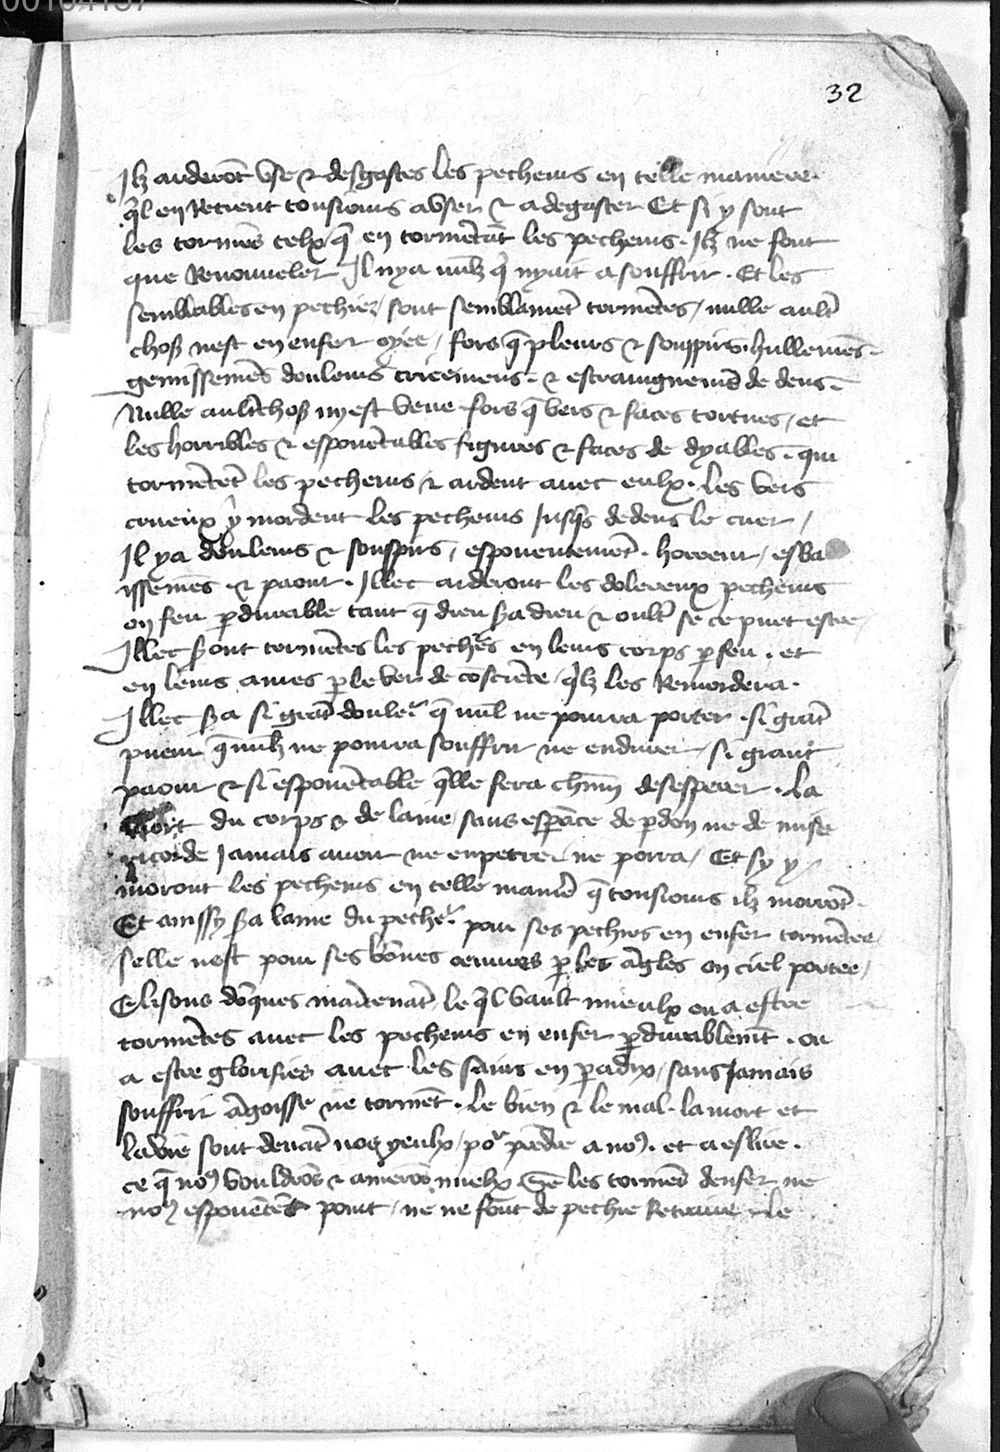 00164137
32
Ilz arderōt vse & desgastes les pecheurs en telle maniere
q̄l en Retient tousiours a vser & a degaster Et si y sont
les tormēs telx q̄ en tormētāt les pecheurs . Ilz ne font
que Renouueler Il nya nulz q̄ nyait a souffrir . Et les
semblables en pechiez / sont semblamēt tormētes / nulle aultr̄
chose nest en enfer oyee / fors q̄ pleurs & souspirs . hullemēs .
gemissemēs douleurs criemens . & estraingnemēs de dens .
Nulle aultr̄ chose nyest veue fors q̄ vers & faces tortues / et
les horribles & espouētables figures & faces de dyables . qui
tormētēt les pecheurs & ardent auec eulx . les vers
crueux y mordent les pecheurs Jusq̄s dedens le cuer /
Il ya douleurs & souspirs / espouentemēt . horreur / esba
issemēs . & paour . Illec arderont les dolereux pecheurs
ou feu p̄durable tant q̄ dieu sera dieu & oultr̄ se ce puet estre /
Illec seront tormētes les pechers en leurs corps p̄ feu . et
en leurs ames p̄ le ver de cōsciēce / q̄ lz les Remordera .
Illec sera si grāt douler q̄ nul ne pourra porter . si grāt
pueur q̄ nulz ne pourra souffrir ne endurer / si grant
paour & si espouētable q̄lle fera chm̄ desesperer . La
Mort du corps & de lame / sans espāce de p̄don ne de mise
ricorde Jamais auoir ne enpetrer ne porra / Et sy y
moront les pecheurs en telle maniē q̄ tousiours ilz morrōt .
Et ainssy sera lame du pecher pour ses pechies en enfer tormētee /
selle nest pour ses bōnes oeuures p̄ les āgles ou ciel portee /
Elisons dōques maītenāt le q̄l vault mieulx ou a estre
tormētes auec les pecheurs en enfer p̄durablemt̄ . ou
a estre glorifies auec les sains en p̄adix / sans Jamais
souffrir āgoisse ne tormēt . le bien & le mal . la mort et
la vie sont deuāt nos yeulx / por prēdre a nos . et a eslire .
ce q̄ nos vouldrōs & amerōs mielx Se les tormēs denfer ne
nos espouētēt point / ne ne font de pechie Retraire & le